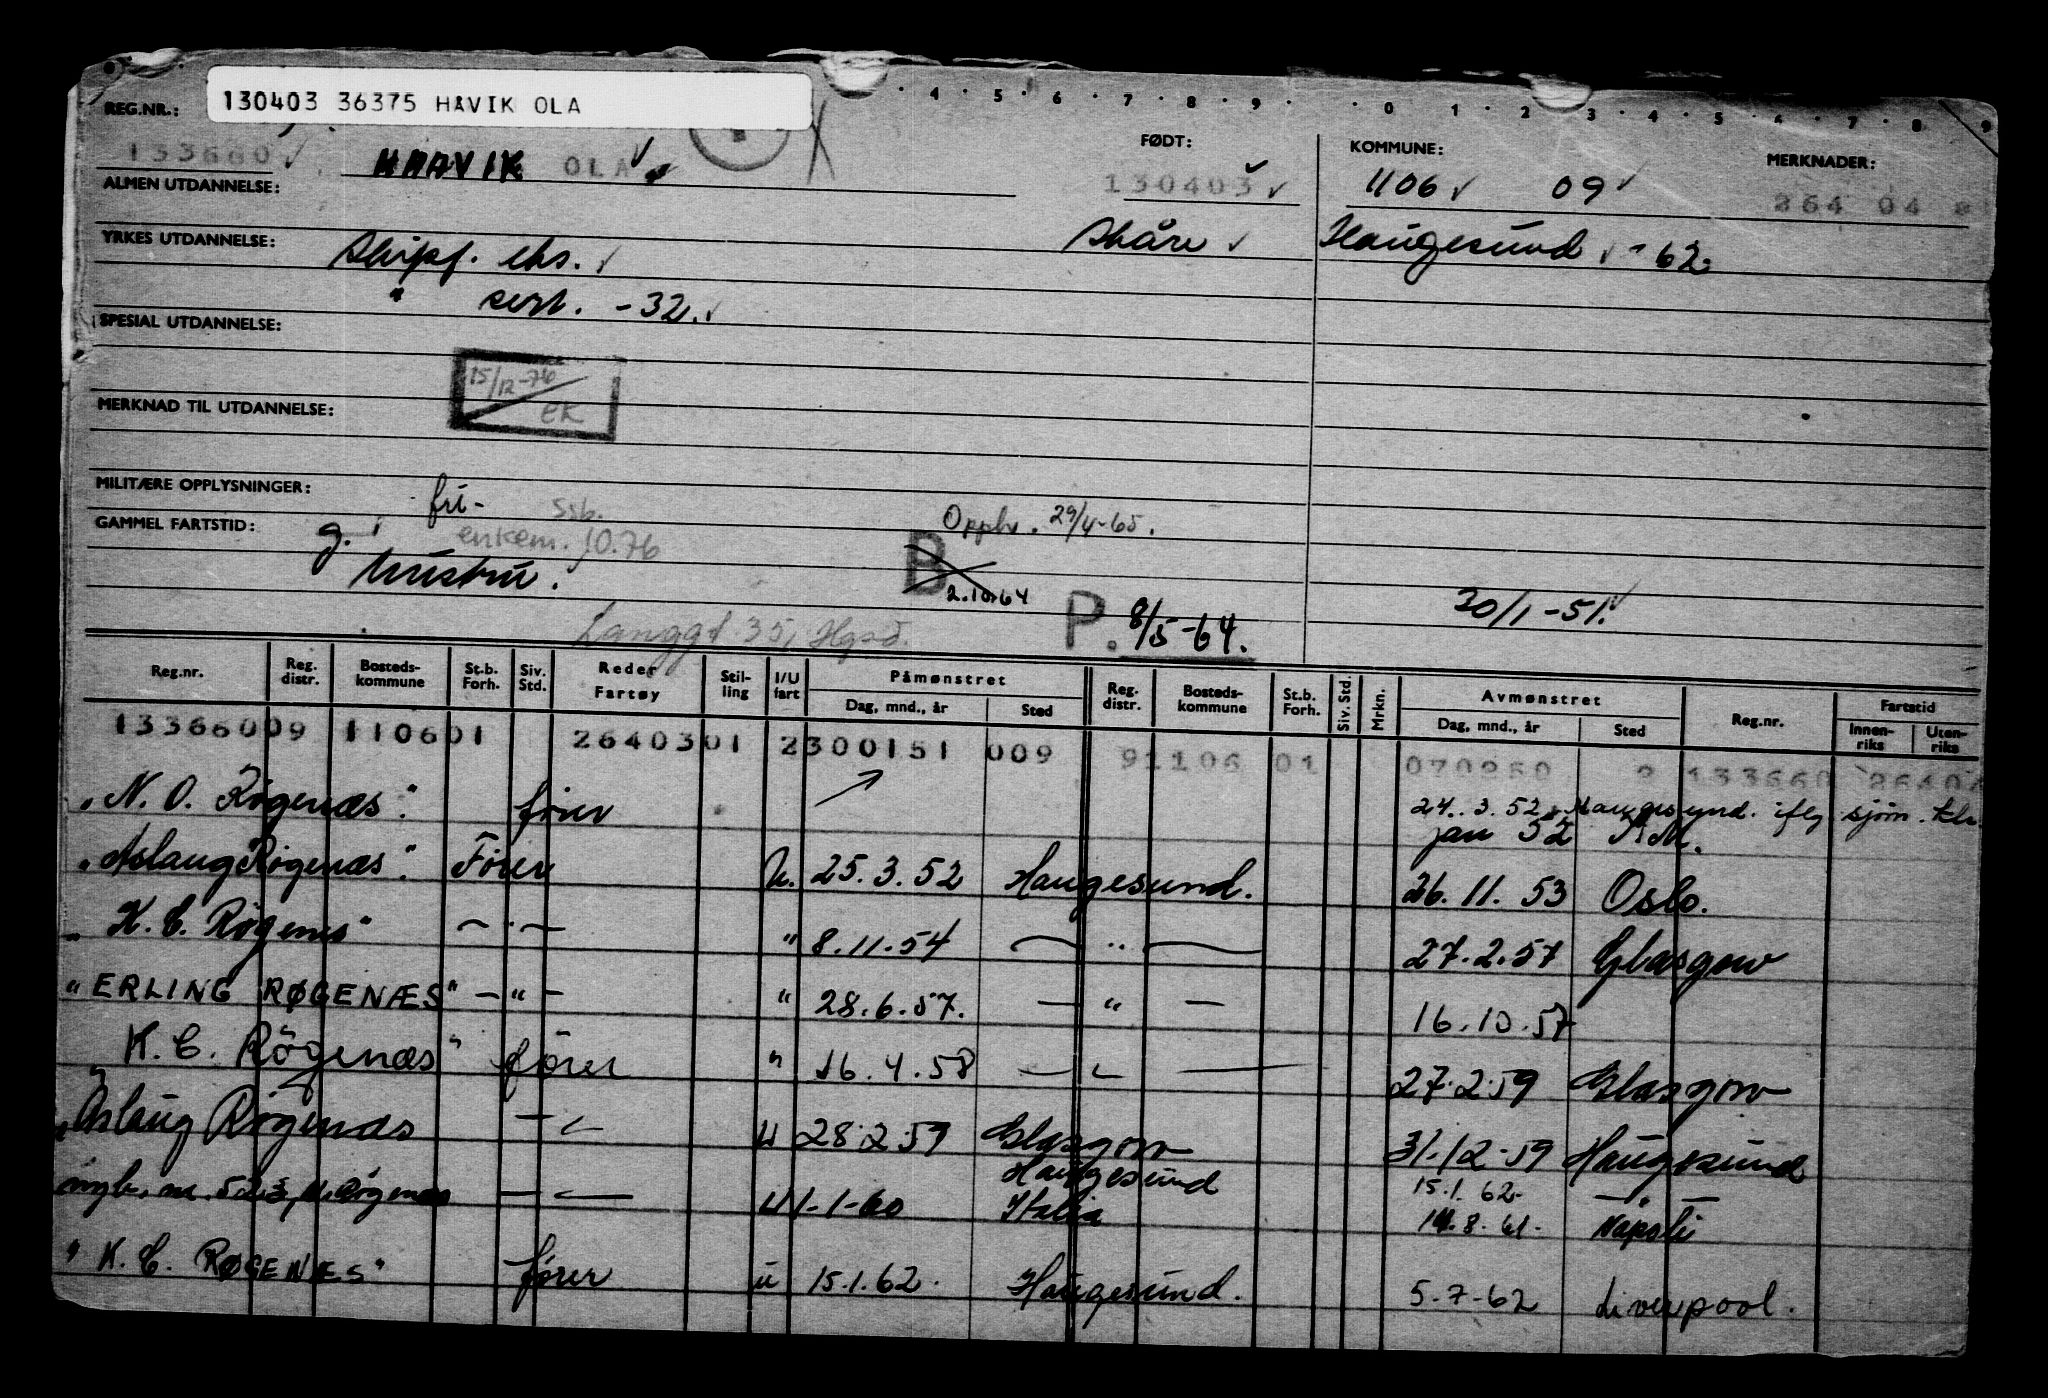 130403 36375 HAVIK OLA
4 · 5 · 6 · 7 · 8 · 9 · · 0 · 1 · 2 · 3 · 4 · 5 · 6 · 7 · 8 · 9
REG.NR.: FØDT: KOMMUNE: MERKNADER:
133660 HAAVIK OLA 130403 1106 09 264 04
ALMEN UTDANNELSE:
Skåre Haugesund -62
YRKES UTDANNELSE: Skipsf. eks.
" sert. -32.
SPESIAL UTDANNELSE:
15/12-76
EK
MERKNAD TIL UTDANNELSE:
MILITÆRE OPPLYSNINGER: fri- Ssb.
Opph. 29/4-65.
GAMMEL FARTSTID: g. enkem. 10.76
B
2.10.64
hustru.
P. 8/5-64. 20/1-51.
Langgt 35, Hgsd.
Reg.nr. Reg. distr. Bosteds-kommune St.b. Forh. Siv. Std. Reder Fartøy Stil-ling I/U fart Påmønstret Reg. distr. Bosteds-kommune St.b. Forh. Siv. Std. Mrkn. Avmønstret Reg.nr. Fartstid
Dag, mnd., år Sted Dag, mnd., år Sted Innen-riks Uten-riks
13366009 110601 2640301 2300151 009 91106 01 070250 2 133660 26404
"N. O. Røgenæs". fører 24.3.52 Haugesund. iflg sjøm.
jan 52 R.M.
"Aslaug Røgenæs". Fører U. 25.3.52 Haugesund. 26.11.53 Oslo.
"K. C. Røgenæs" — " — " 8.11.54 — " — 27.2.57 Glasgow
"ERLING RØGENÆS" — " — " 28.6.57. — " — 16.10.57
K. C. Røgenæs" fører " 16.4.58 — " — 27.2.59 Glasgow
"Aslaug Røgenæs — " — U 28.2.59 Glasgow 31.12.59 Haugesund
Haugesund 15.1.62 — " —
— " — U 1-1-60 Italia 14.8.61. Napoli
"K. C. RØGENÆS" fører u 15.1.62. Haugesund. 5.7-62 Liverpool.